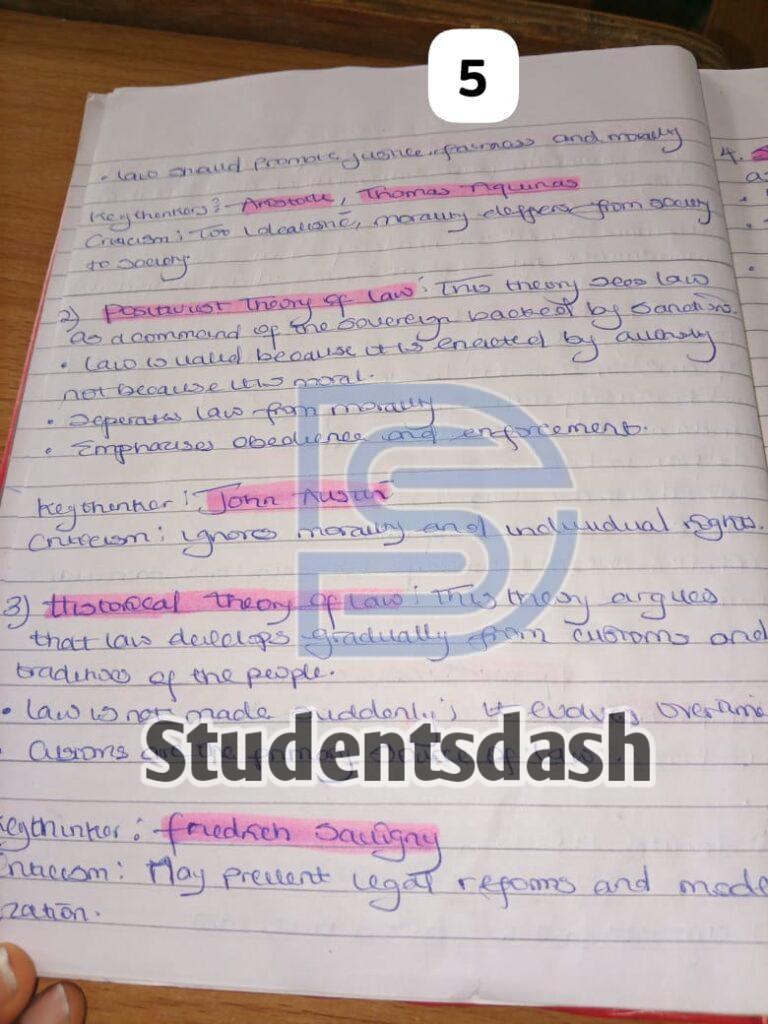 5
• law should promote justice, fairness and morality
Key thinkers: Aristotle, Thomas Aquinas
Criticism: Too idealistic, morality differs from society
to society.
2) Positivist Theory of law: This theory sees law
as a command of the sovereign backed by sanctions.
• law is valid because it is enacted by authority
not because it is moral.
• Seperates law from morality
• Emphasises obedience and enforcement.
Key thinker: John Austin
Criticism: ignores morality and individual rights.
3) Historical theory of law: This theory argues
that law develops gradually from customs and
traditions of the people.
• law is not made suddenly; it evolves overtime
• Customs are the primary source of law.
Studentsdash
Keythinker: friedrich Savigny
Criticism: May prevent legal reforms and mode
ization.
4.